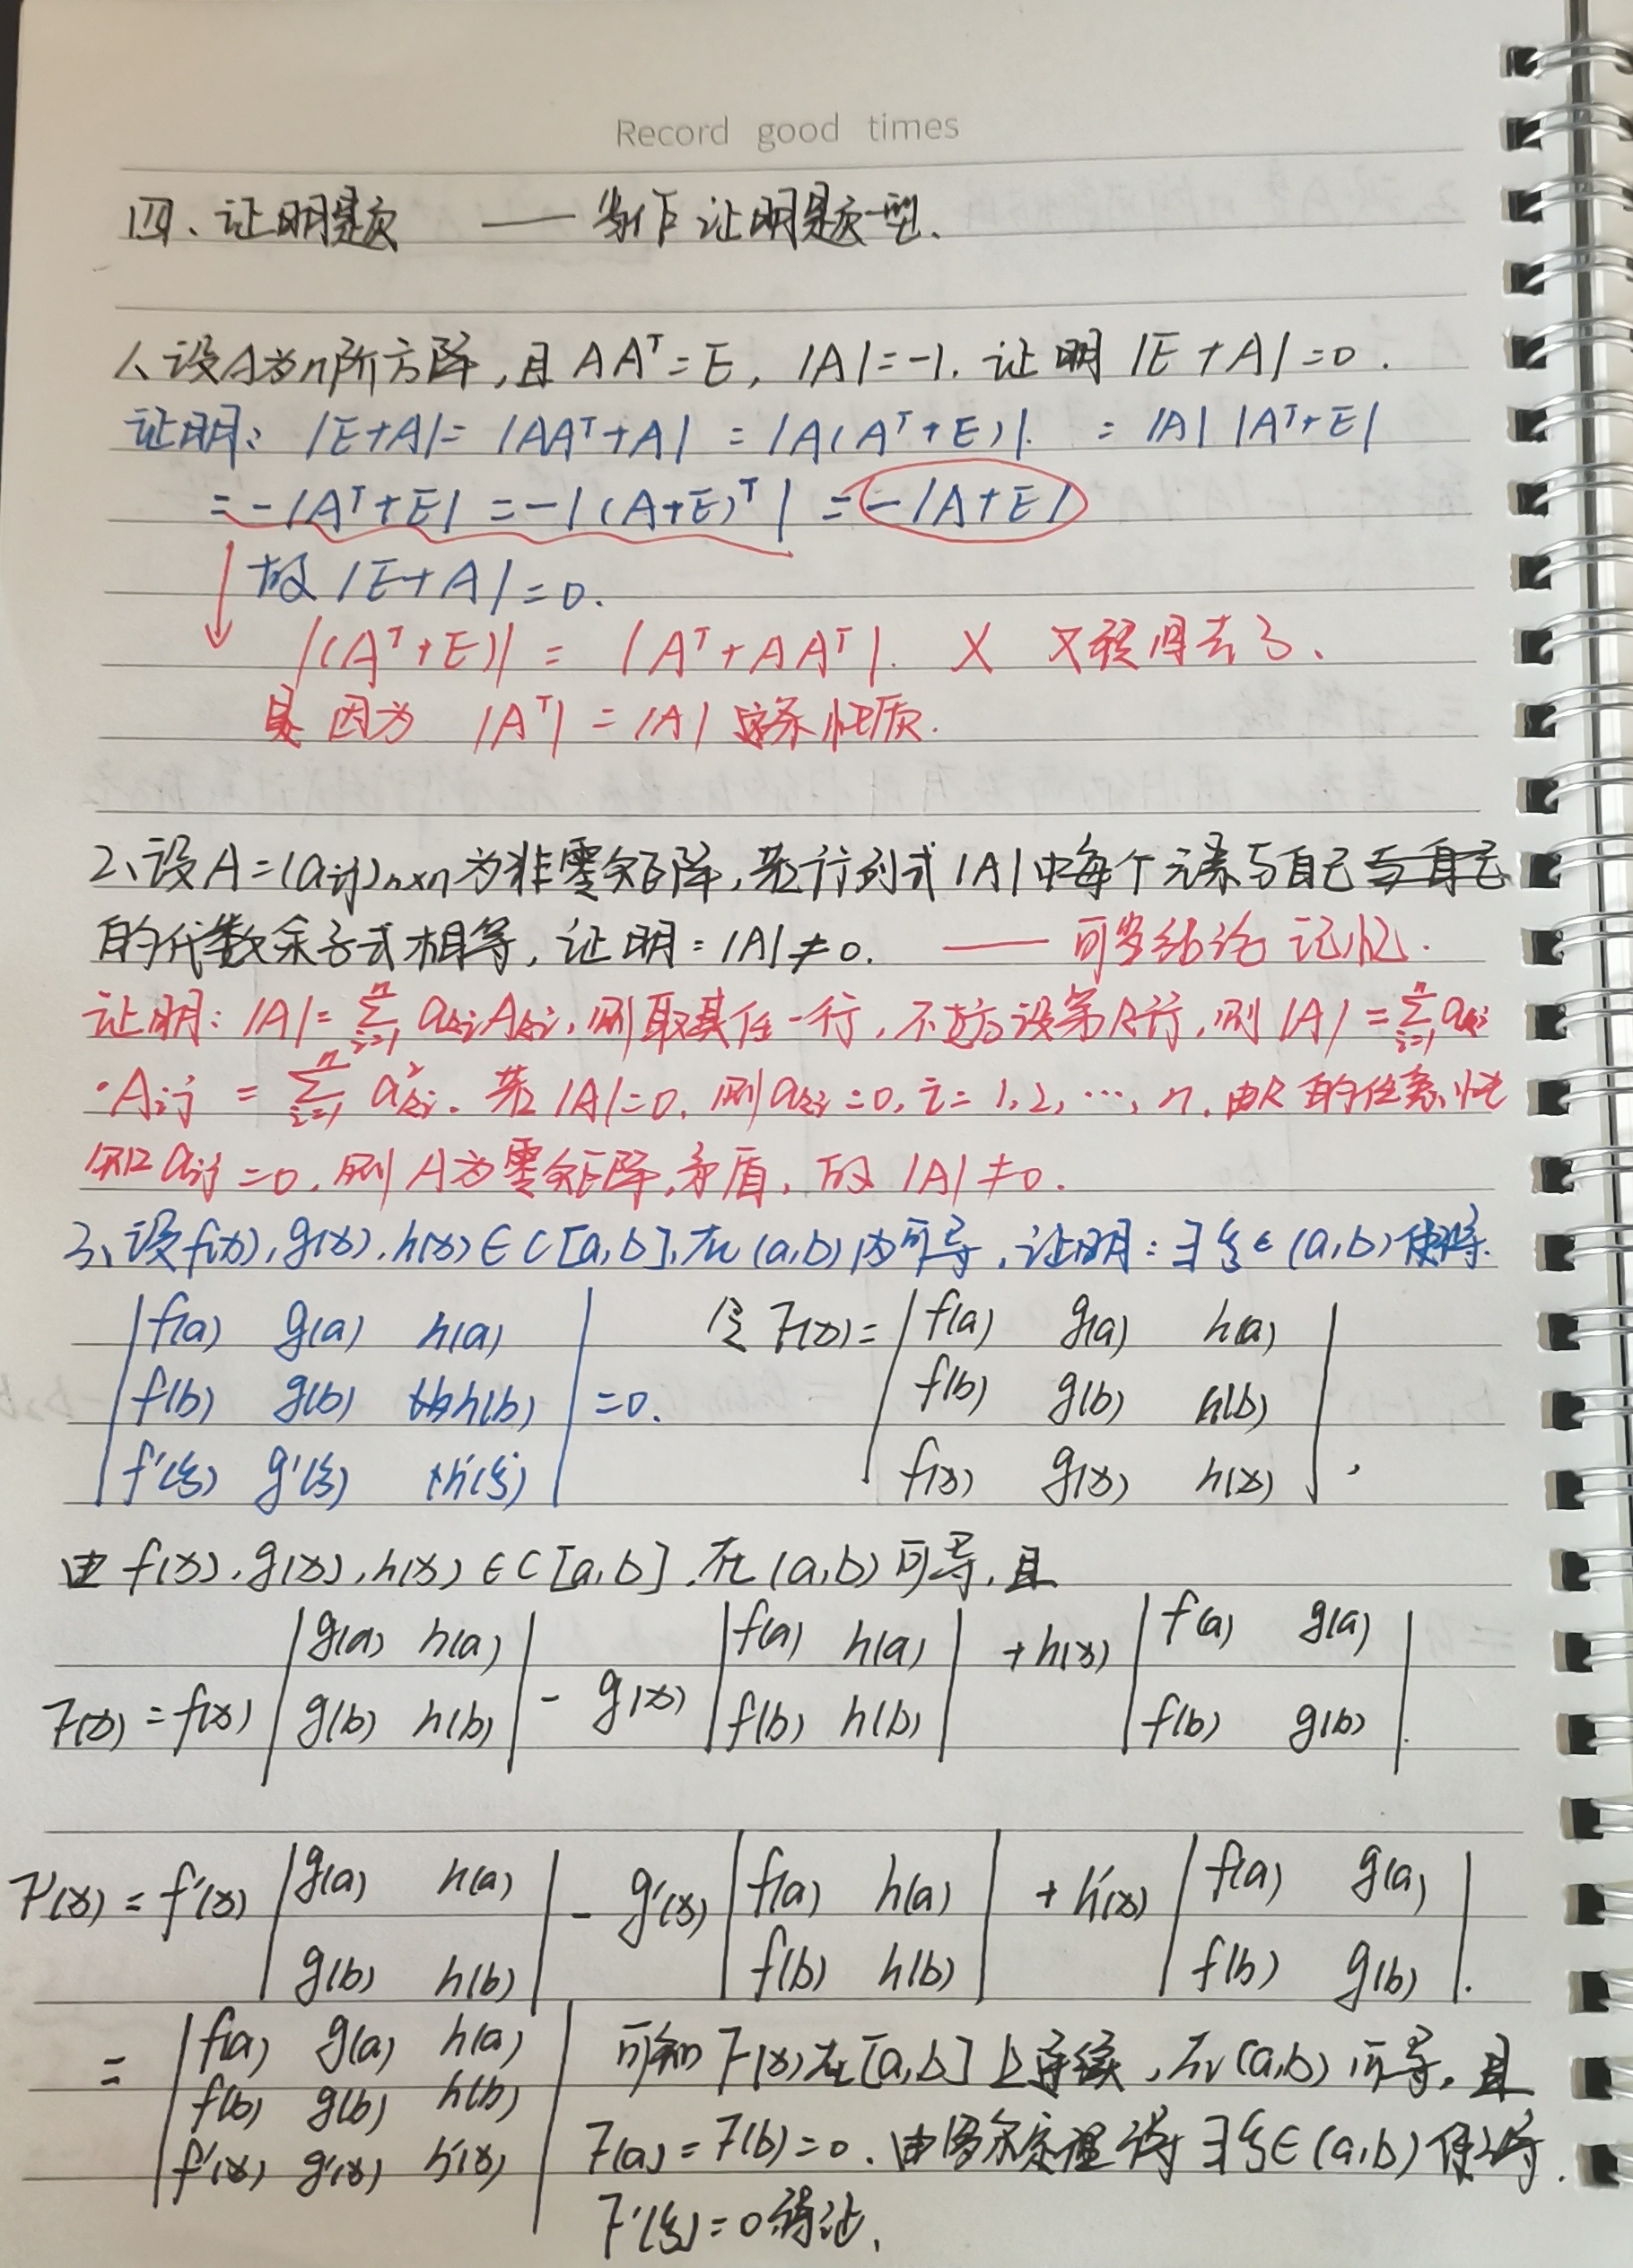 Record good times
四、证明题 —— 当作证明题型.
1、设A为n阶方阵,且AAᵀ=E, |A|=-1. 证明 |E+A|=0.
证明: |E+A|= |AAᵀ+A| = |A(Aᵀ+E)|. = |A| |Aᵀ+E|
= -|Aᵀ+E| = -|(A+E)ᵀ| = -|A+E|
故 |E+A|=0.
|(Aᵀ+E)| = |Aᵀ+AAᵀ|. X 又绕回去了、
是因为 |Aᵀ| = |A| 这条性质.
2、设A=(aij)n×n为非零矩阵,若行列式|A|中每个元素与自己与自己
的代数余子式相等, 证明: |A|≠0. —— 可当结论记忆.
证明: |A|=∑ⁿᵢ₌₁ akiAki, 则取其任一行, 不妨设第k行, 则 |A| =∑ⁿᵢ₌₁ aki
·Aij = ∑ⁿᵢ₌₁ a²ki. 若|A|=0, 则aki=0, i=1,2,…,n. 由k的任意性
知aij=0, 则A为零矩阵,矛盾, 故 |A|≠0.
3、设f(x),g(x),h(x)∈C[a,b],在(a,b)内可导, 证明: ∃ξ∈(a,b)使得.
|f(a) g(a) h(a)| 令F(x)= |f(a) g(a) h(a)|
|f(b) g(b) h(b)| =0. |f(b) g(b) h(b)|
|f′(ξ) g′(ξ) h′(ξ)| |f(x) g(x) h(x)| ,
由 f(x),g(x),h(x)∈C[a,b], 在(a,b)可导, 且
F(x) = f(x) |g(a) h(a)| - g(x) |f(a) h(a)| + h(x) |f(a) g(a)|
|g(b) h(b)| |f(b) h(b)| |f(b) g(b)|.
F′(x) = f′(x) |g(a) h(a)| - g′(x) |f(a) h(a)| + h′(x) |f(a) g(a)|
|g(b) h(b)| |f(b) h(b)| |f(b) g(b)|.
= |f(a) g(a) h(a)| 可知F(x)在[a,b]上连续, 在(a,b)可导, 且
|f(b) g(b) h(b)|
|f′(x) g′(x) h′(x)| F(a)=F(b)=0. 由罗尔定理得∃ξ∈(a,b)使得.
F′(ξ)=0得证.